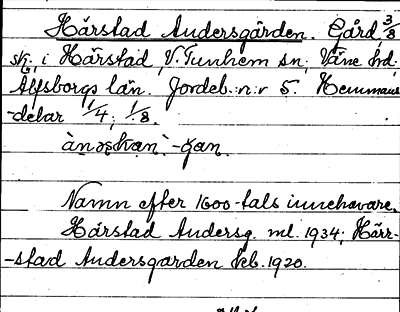 Hårstad Andersgården. Gård, 3/8
sk., i Hårstad, V. Tunhem sn, Väne hd.
Älfsborgs län. Jordeb. n:r 5. Hemmans-
-delar 1/4; 1/8.
Namn efter 1600-tals innehavare.
Hårstad Andersg. ml. 1934; Hårr-
-stad Andersgården kb. 1920.